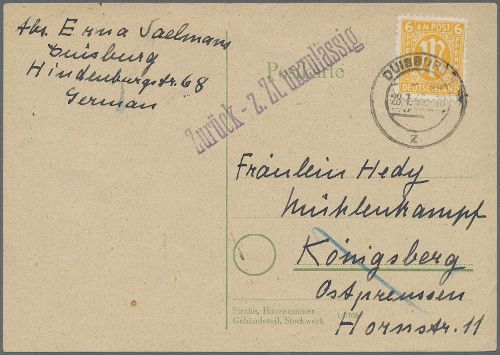 Abs. Erna Saelmans
Duisburg
Hindenburgstr. 68
German
Postkarte
Zurück - z. Zt. unzulässig
6 AM POST 6
DEUTSCHLAND
DUISBURG
Z
Fräulein Hedy
Mühlenkampf
Königsberg
Ostpreussen
Hornstr. 11
Straße, Hausnummer
Gebäudeteil, Stockwerk